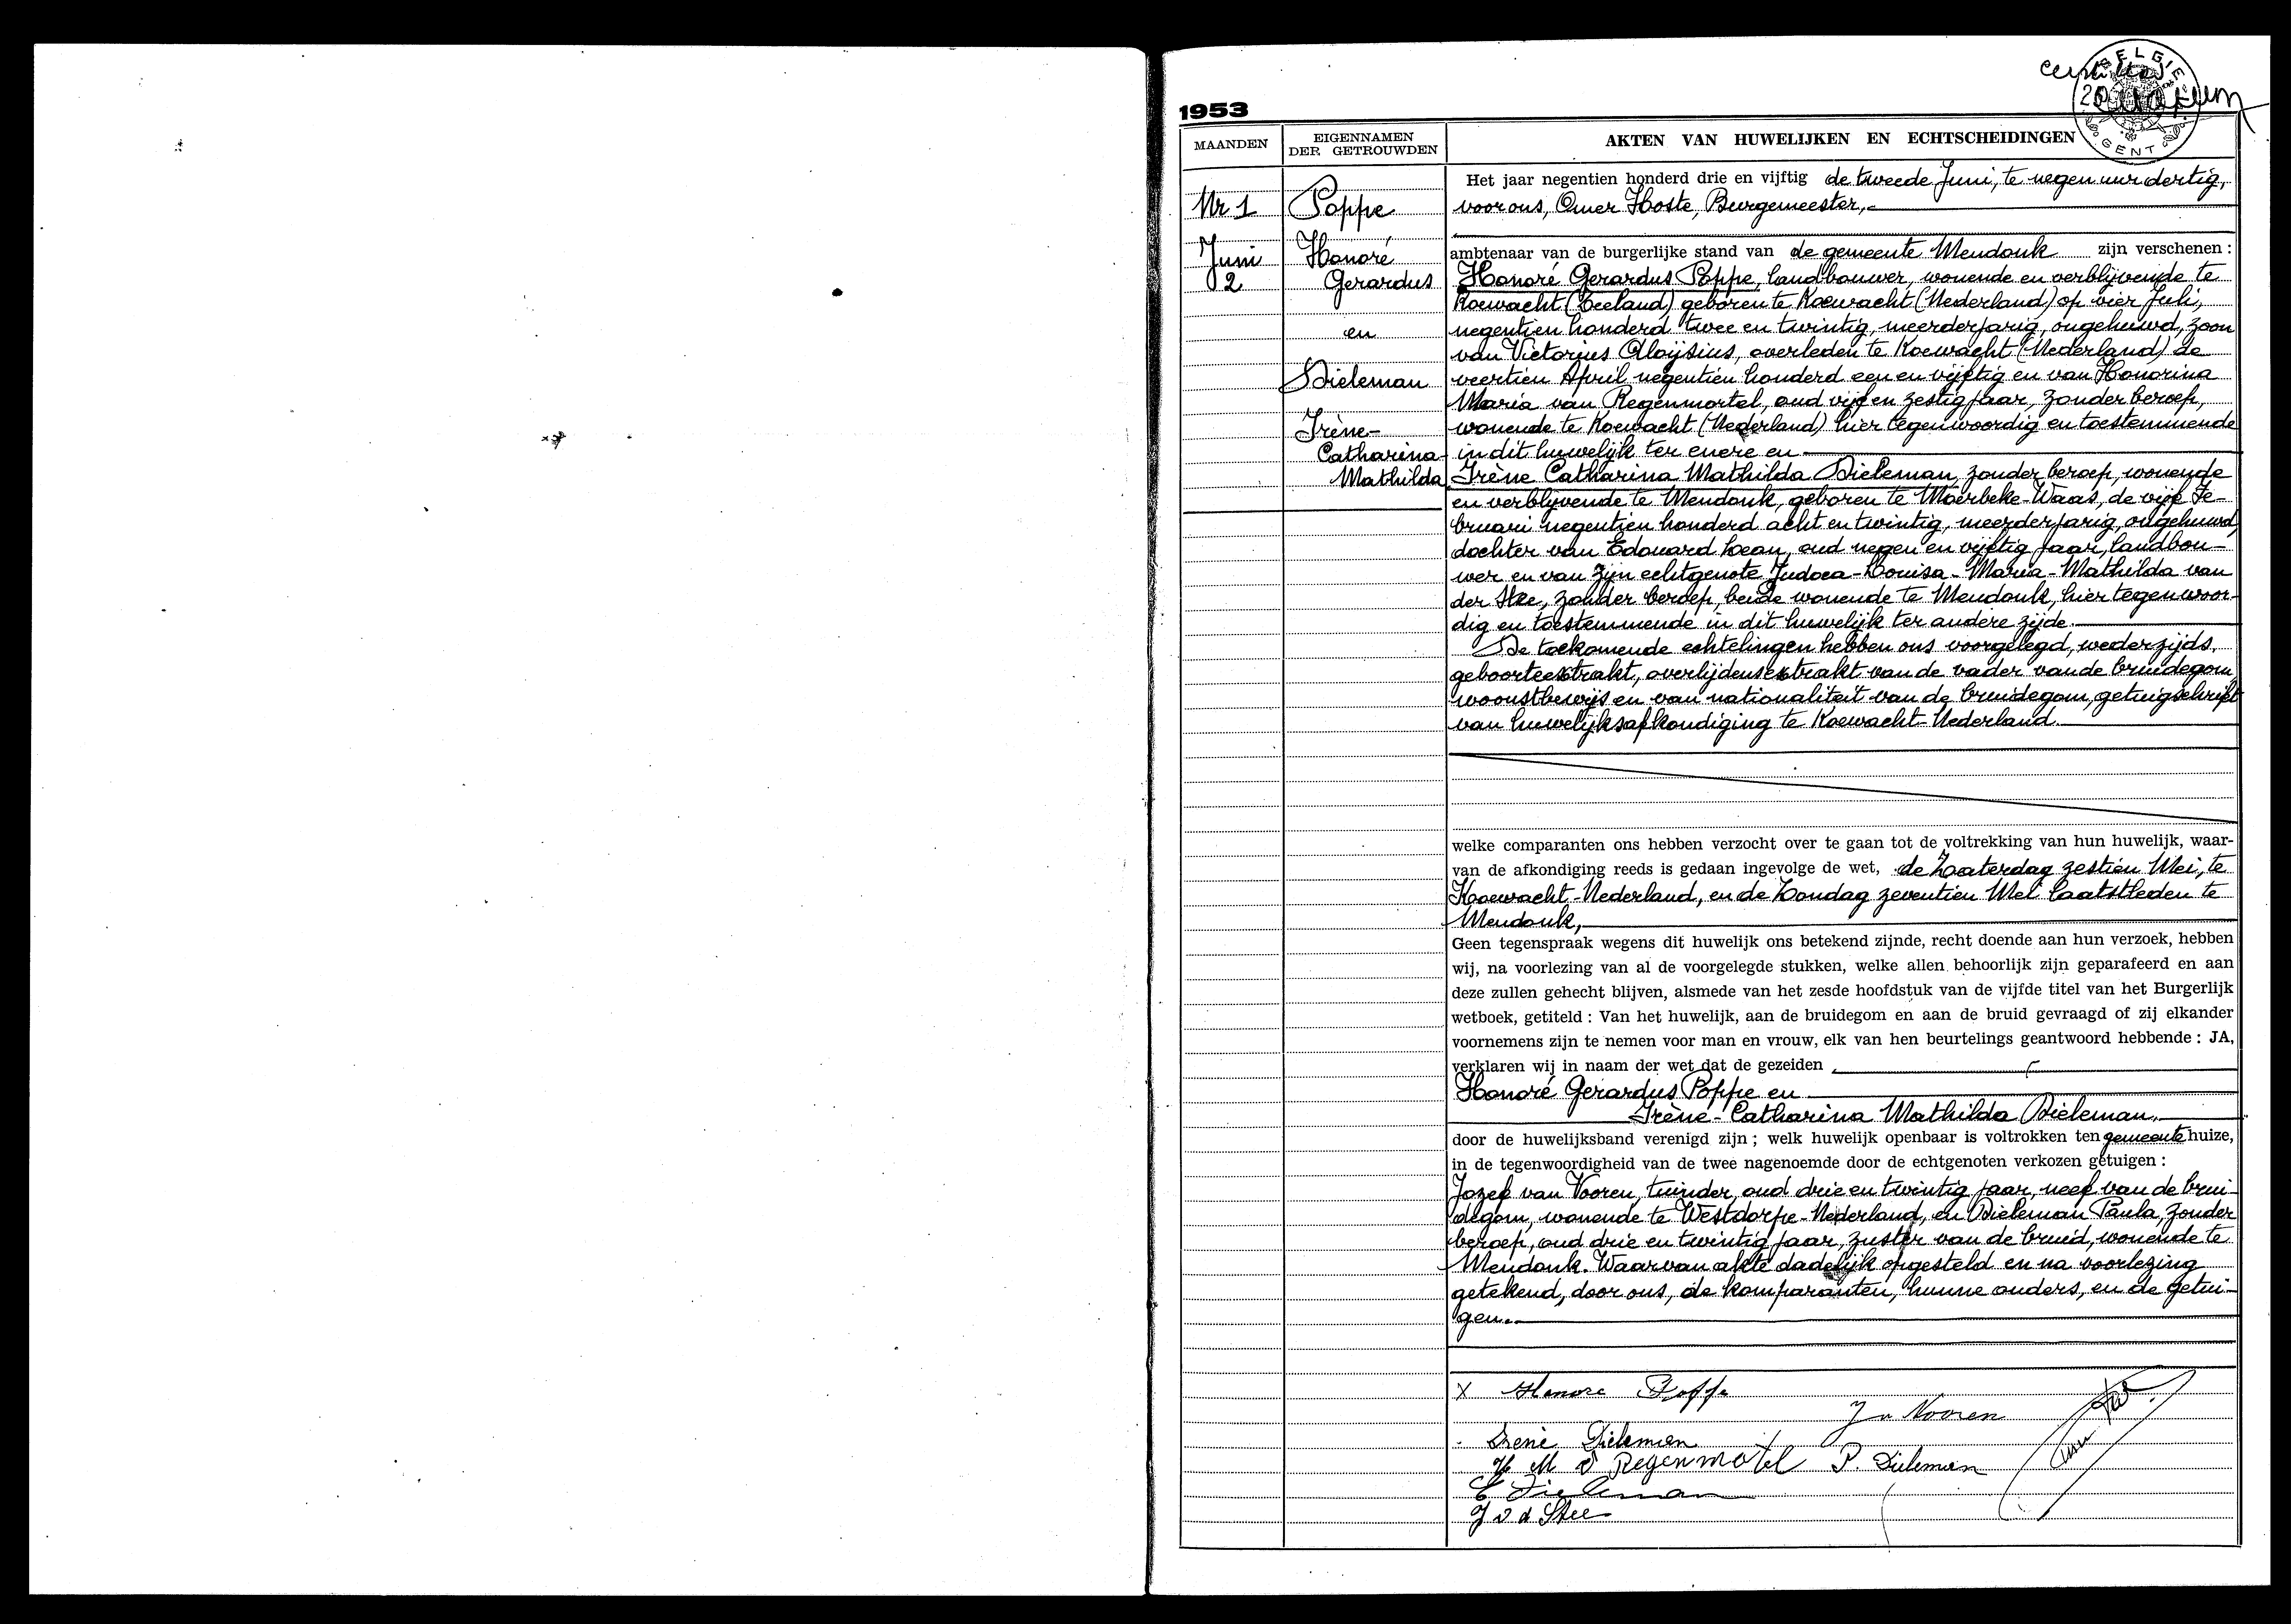 BELGIE
GENT
1953
MAANDEN
EIGENNAMEN
DER GETROUWDEN
AKTEN VAN HUWELIJKEN EN ECHTSCHEIDINGEN
Nr 1
Juni
2
Poppe
Honoré
Gerardus
en
Dieleman
Irène-
Catharina-
Mathilda
Het jaar negentien honderd drie en vijftig de tweede Juni, te negen uur dertig,
voor ons, Omer Hoste, Burgemeester,-
ambtenaar van de burgerlijke stand van de gemeente Mendonk zijn verschenen :
Honoré Gerardus Poppe, landbouwer, wonende en verblijvende te
Koewacht (Zeeland) geboren te Koewacht (Nederland) op vier Juli,
negentien honderd twee en twintig, meerderjarig, ongehuwd, zoon
van Victorius Aloÿsius, overleden te Koewacht (Nederland) de
veertien April negentien honderd een en vijftig en van Honorina
Maria van Regenmortel, oud vijf en zestig jaar, zonder beroep,
wonende te Koewacht (Nederland) hier tegenwoordig en toestemmende
in dit huwelijk ter enere en
Irène Catharina Mathilda Dieleman, zonder beroep, wonende
en verblijvende te Mendonk, geboren te Moerbeke-Waas, de vijf Fe-
bruari negentien honderd acht en twintig, meerderjarig, ongehuwd,
dochter van Edouard Leon, oud negen en vijftig jaar, landbou-
wer en van zijn echtgenote Judoca-Louisa-Maria-Mathilda van
der Stee, zonder beroep, beide wonende te Mendonk, hier tegenwoor-
dig en toestemmende in dit huwelijk ter andere zijde.
De toekomende echtelingen hebben ons voorgelegd, wederzijds
geboorteextrakt, overlijdensextrakt van de vader van de bruidegom,
woonstbewijs en van nationaliteit van de bruidegom, getuigschrift
van huwelijksafkondiging te Koewacht-Nederland.
welke comparanten ons hebben verzocht over te gaan tot de voltrekking van hun huwelijk, waar-
van de afkondiging reeds is gedaan ingevolge de wet, de Zaaterdag zestien Mei, te
Koewacht-Nederland, en de Zondag zeventien Mei laatstleden te
Mendonk,
Geen tegenspraak wegens dit huwelijk ons betekend zijnde, recht doende aan hun verzoek, hebben
wij, na voorlezing van al de voorgelegde stukken, welke allen behoorlijk zijn geparafeerd en aan
deze zullen gehecht blijven, alsmede van het zesde hoofdstuk van de vijfde titel van het Burgerlijk
wetboek, getiteld : Van het huwelijk, aan de bruidegom en aan de bruid gevraagd of zij elkander
voornemens zijn te nemen voor man en vrouw, elk van hen beurtelings geantwoord hebbende : JA,
verklaren wij in naam der wet dat de gezeiden
Honoré Gerardus Poppe en
Irène-Catharina Mathilda Dieleman,
door de huwelijksband verenigd zijn ; welk huwelijk openbaar is voltrokken ten gemeente huize,
in de tegenwoordigheid van de twee nagenoemde door de echtgenoten verkozen getuigen :
Jozef van Vooren, tuinder, oud drie en twintig jaar, neef van de brui-
degom, wonende te Westdorpe-Nederland, en Dieleman Paula, zonder
beroep, oud drie en twintig jaar, zuster van de bruid, wonende te
Mendonk. Waarvan akte dadelijk opgesteld en na voorlezing
getekend, door ons, de komparanten, hunne ouders, en de getui-
gen.
X Honore Poppe
J v Vooren
Irené Dieleman
H M v Regenmotel P. Dieleman
E Dieleman
J v d Stee